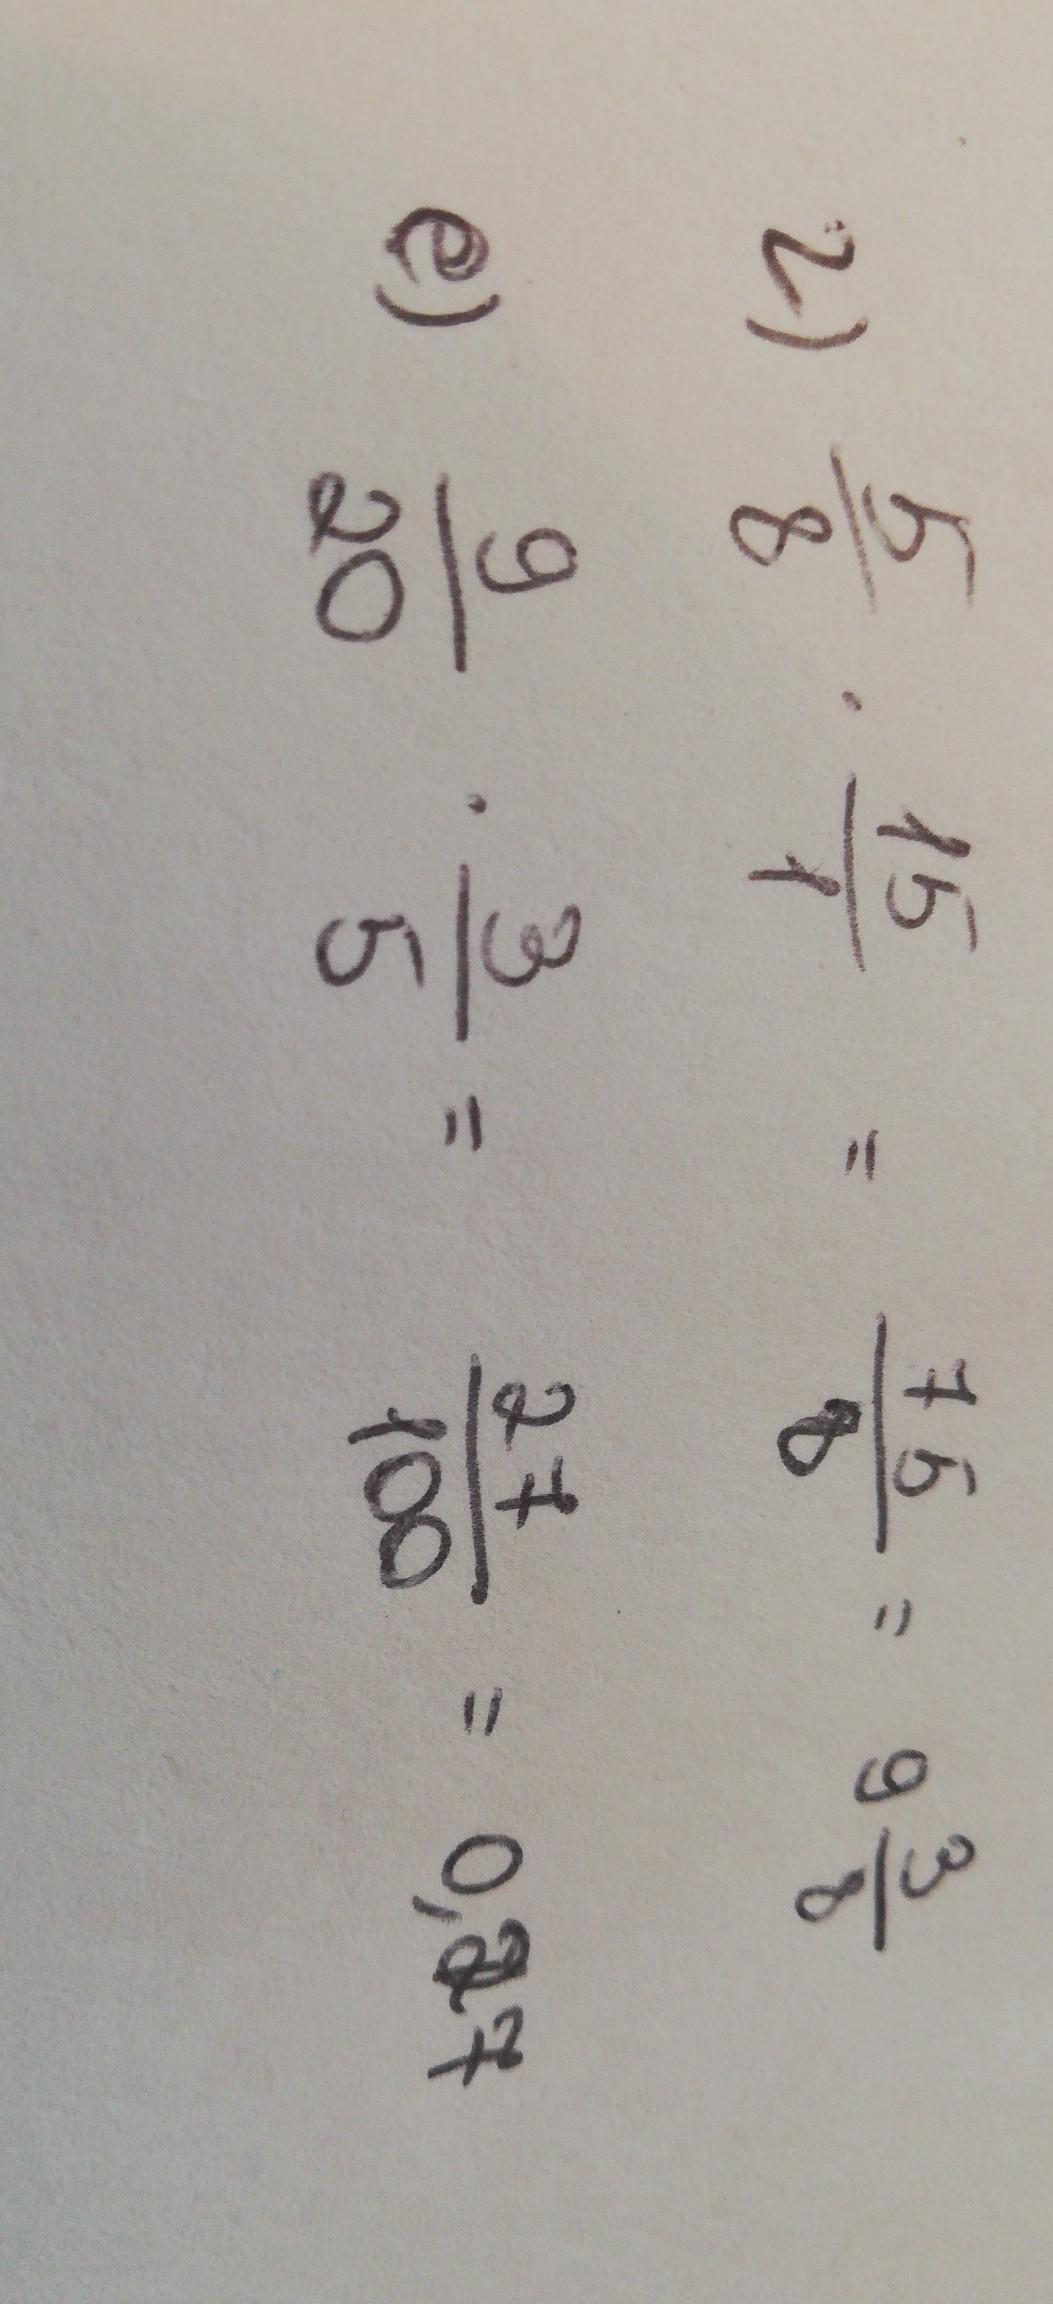 г) 5/8 · 15/1 = 75/8 = 9 3/8
е) 9/20 · 3/5 = 27/100 = 0,27